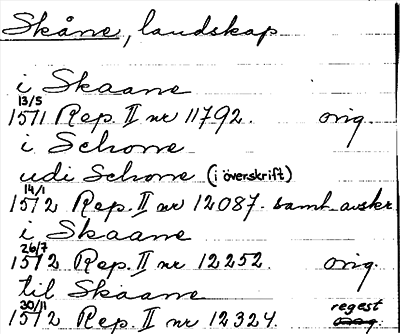 Skåne, landskap
i Skaane
13/5
1511 Rep. II nr 11792. orig.
i Schone
udi Schone (i överskrift)
14/1
1512 Rep. II nr 12087. samt. avskr.
i Skaane
26/7
1512 Rep. II nr 12252. orig.
til Skaane
30/11 regest
1512 Rep. II nr 12324. orig